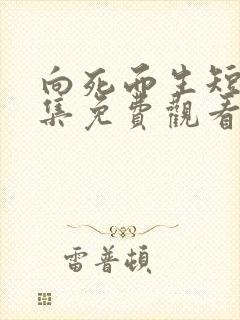 向死而生短
集免費觀看
雷普頓